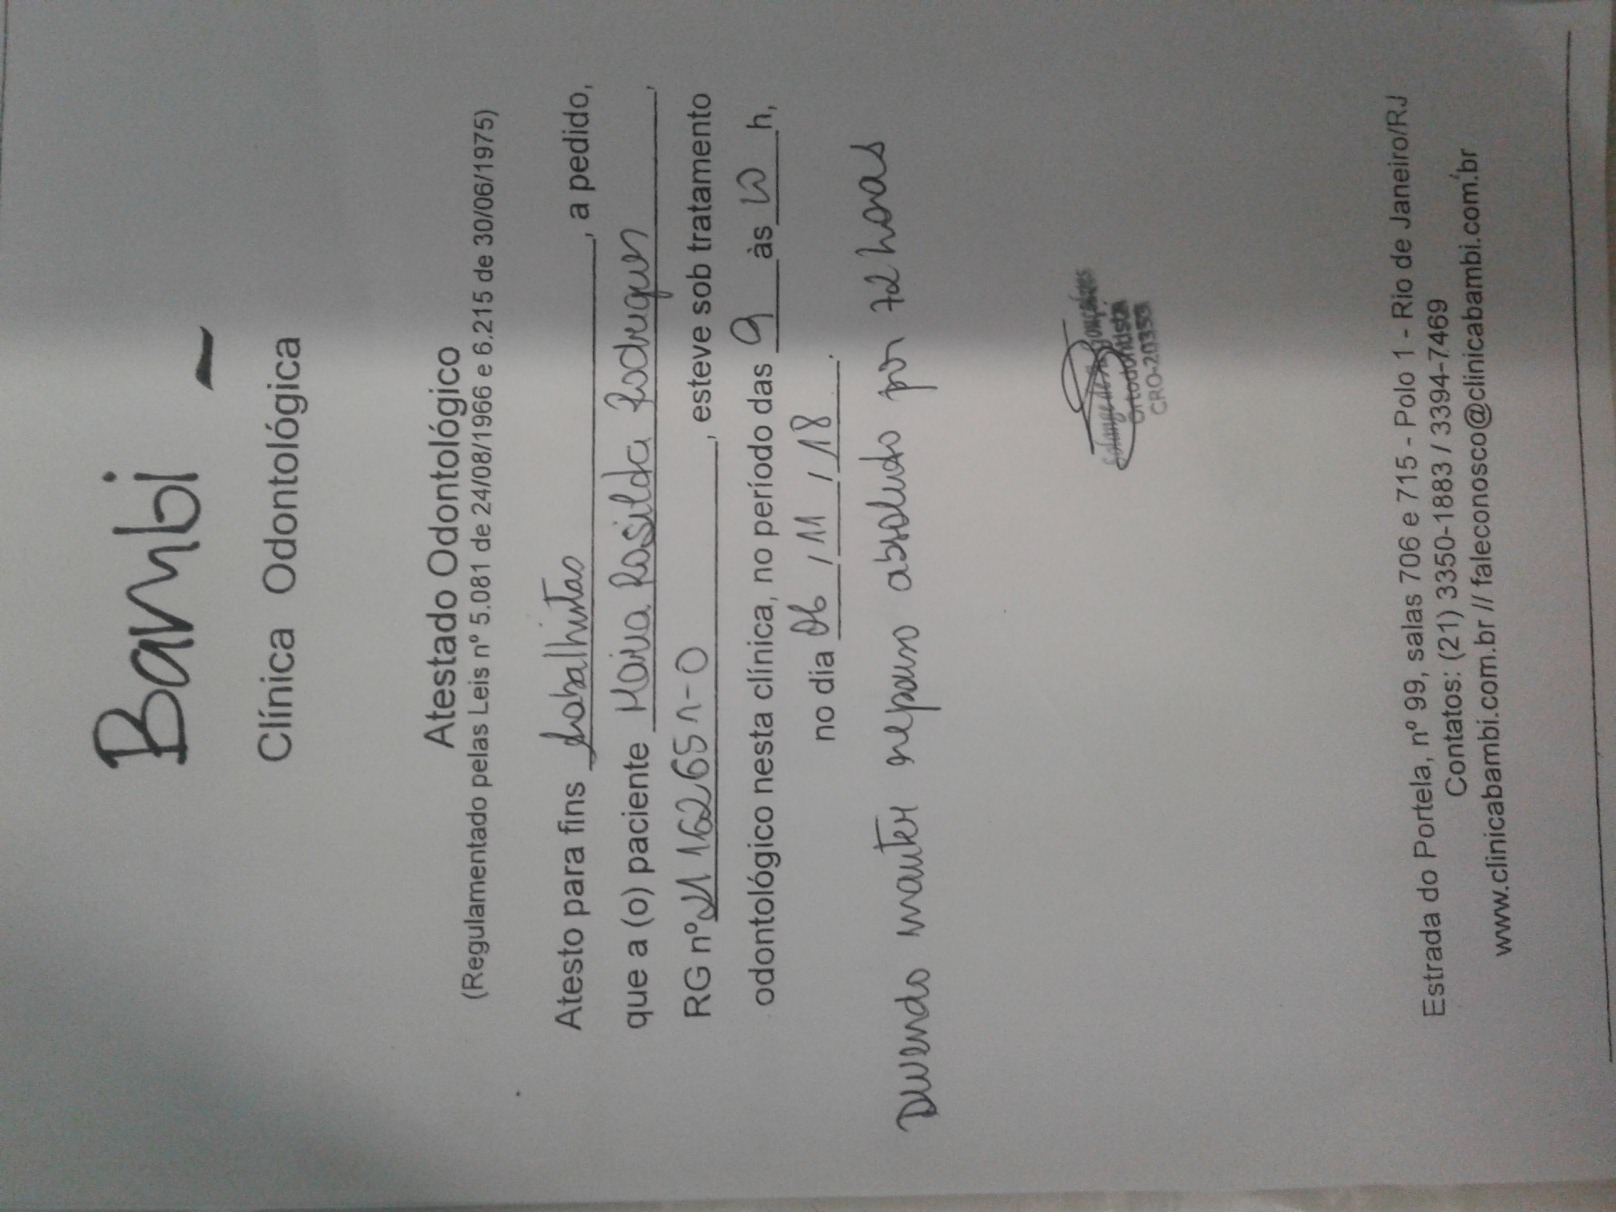 Bambi
Clínica Odontológica
Atestado Odontológico
(Regulamentado pelas Leis nº 5.081 de 24/08/1966 e 6.215 de 30/06/1975)
Atesto para fins trabalhistas, a pedido,
que a (o) paciente Maria Rosilda Rodrigues,
RG nº 21162651-0, esteve sob tratamento
odontológico nesta clínica, no período das 9 às 10 h,
no dia 06/11/18.
Devendo manter repouso absoluto por 72 horas
Solange de
Ortodontista
CRO-20353
Estrada do Portela, nº 99, salas 706 e 715 - Polo 1 - Rio de Janeiro/RJ
Contatos: (21) 3350-1883 / 3394-7469
www.clinicabambi.com.br // faleconosco@clinicabambi.com.br